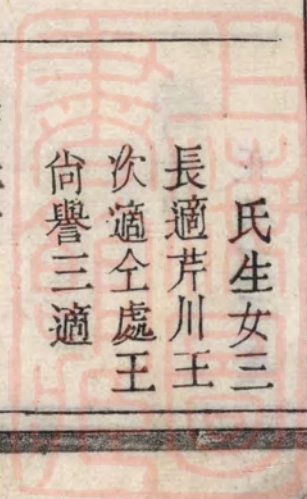 氏生女三
長適芹川王
次適仝處王
尙譽三適